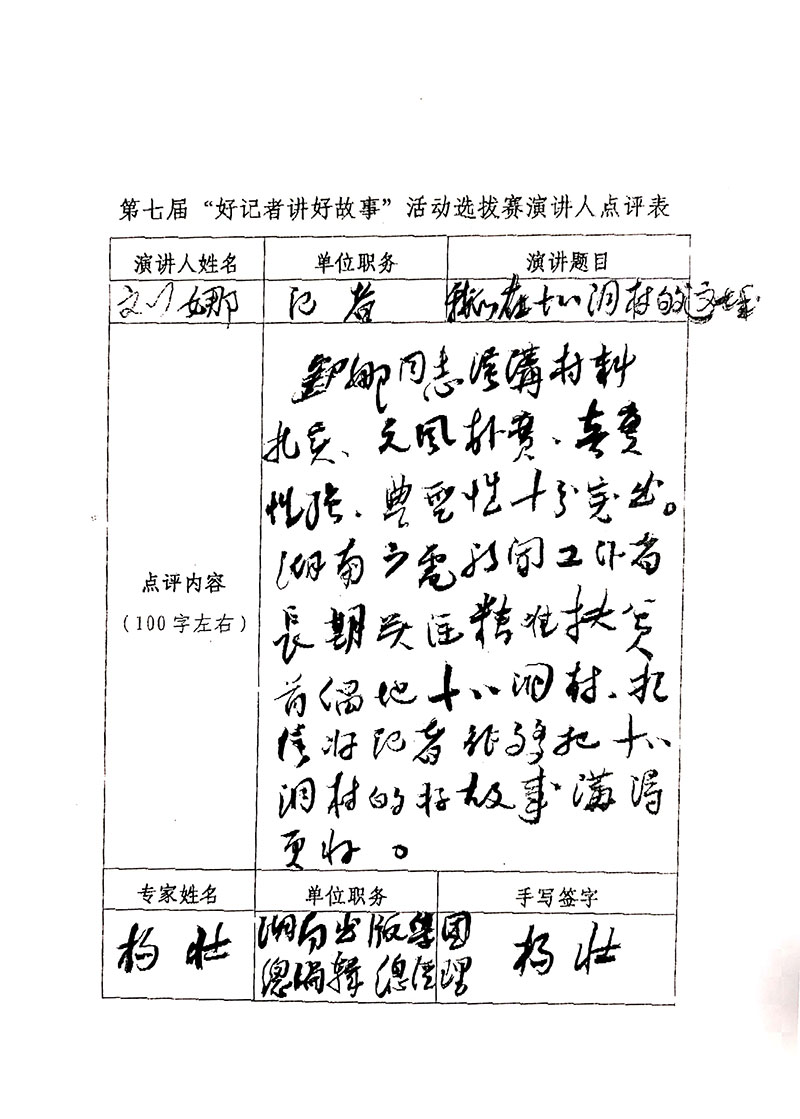 第七届“好记者讲好故事”活动选拔赛演讲人点评表
演讲人姓名 单位职务 演讲题目
刘娜 记者 我们在十八洞村的这七年
同志演講材料
扎实、文風朴實、真實
性强、典型性十分突出。
湖南广電新闻工作者
長期关注精准扶贫
首倡地十八洞村、相
信好记者能够把十八
洞村的好故事講得
更好。
点评内容
（100字左右）
专家姓名 单位职务 手写签字
杨壮 湖南出版集团 杨壮
总编辑 总经理